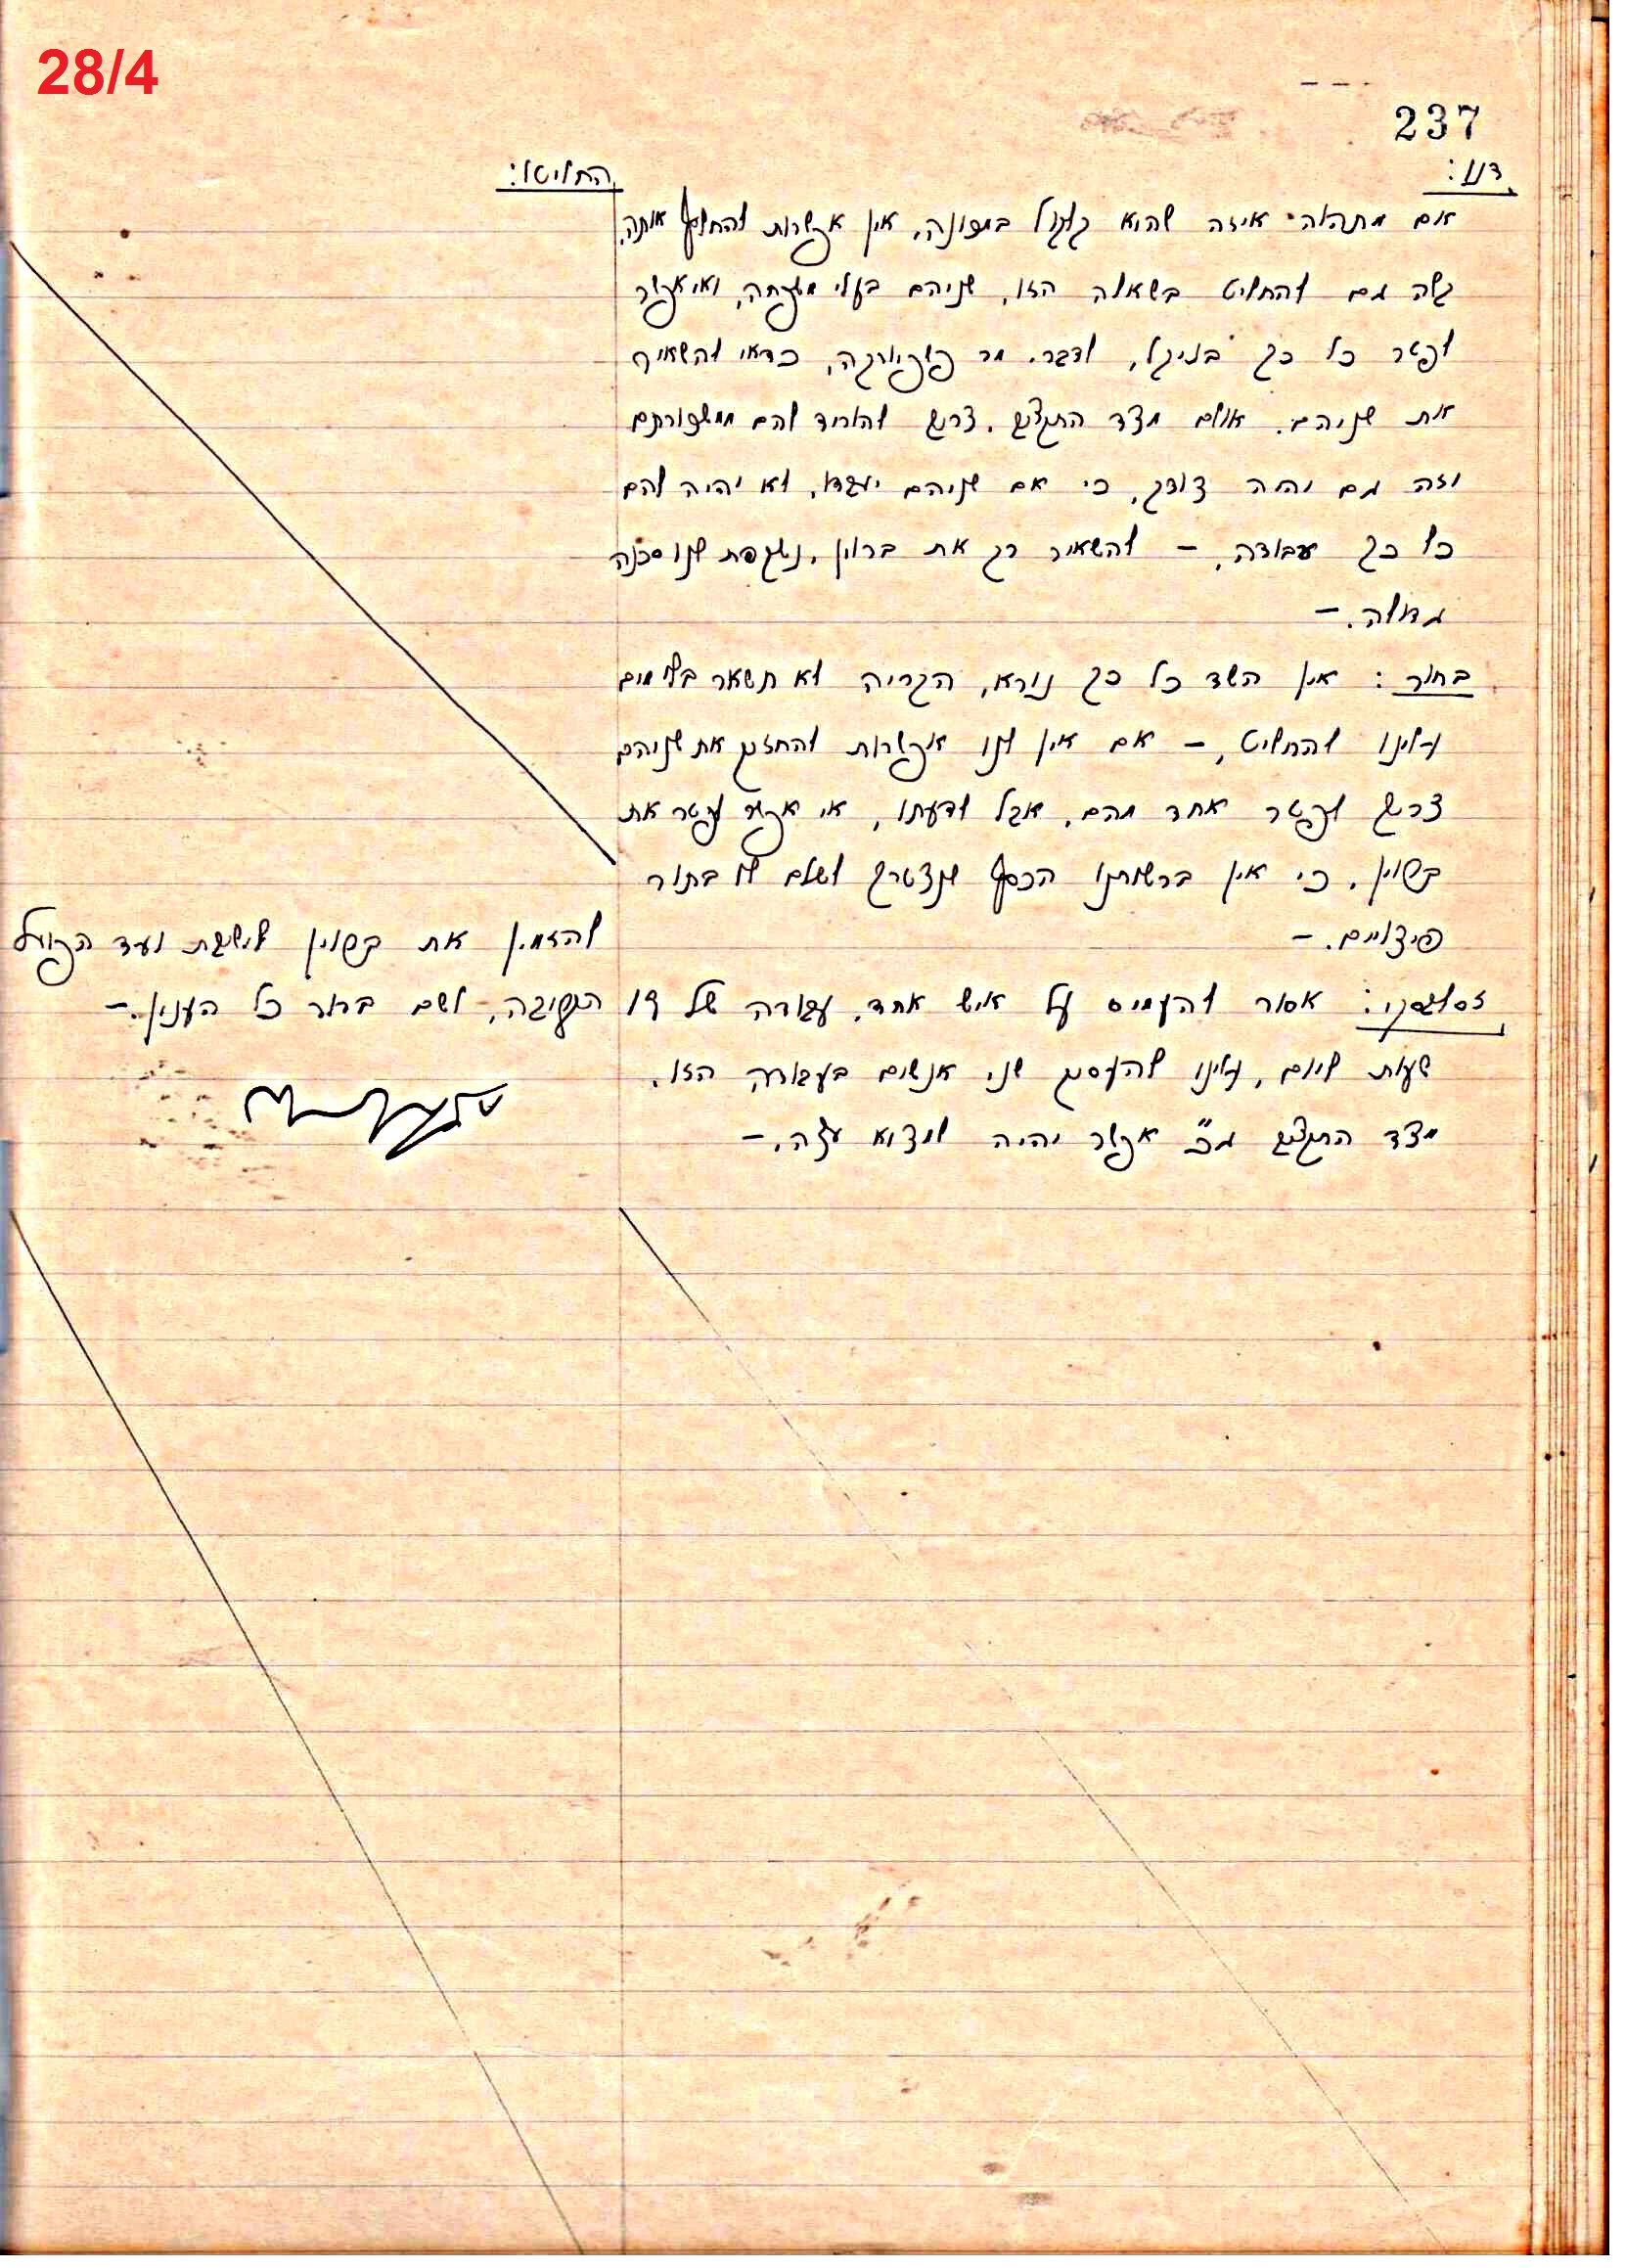 28/4
237
דנו:
אם מתהוה איזה שהוא קלקול במכונה, אין אפשרות להחליף אותה.
קשה גם להחליט בשאלה הזו, שניהם בעלי משפחה, ואי אפשר
לפטר כל כך בניקל, לדבר. מר כדאי להשאיר
את שניהם. אולם מצד התקציב, צריך להוריד להם ממשכורתם
וזה גם יהיה צודק, כי אם שניהם יעבדו, לא יהיה להם
כל כך עבודה, - להשאיר רק את ברוין, נשקפת לנו סכנה
גדולה. -
בחור: אין השד כל כך נורא, הקריה לא תשאר בלי מים
עלינו להחליט, - אם אין לנו אפשרות להחזיק את שניהם
צריך לפטר אחד מהם. אבל לדעתו, אי אפשר לפטר את
קשוין, כי אין ברשותנו הכסף שנצטרך לשלם לו בתור
פיצויים. -
זסלבסקי: אסור להעמיס על איש אחד, עבודה של 19
שעות ליום, עלינו להעסיק שני אנשים בעבודה הזו.
מצד התקציב ג"כ אפשר יהיה למצוא עצה. -
החליטו:
להזמין את קשוין לישיבת ועד הפועל
הקרובה, ושם ברור כל הענין. -